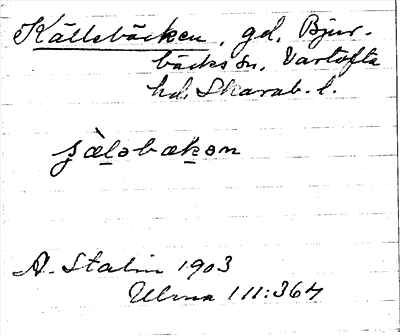 Källebäcken, gd, Bjur-
bäcks sn, Vartofta
hd, Skarab. l.
ʂæ̀lәbækәn
A. Stalin 1903
Ulma 111:364